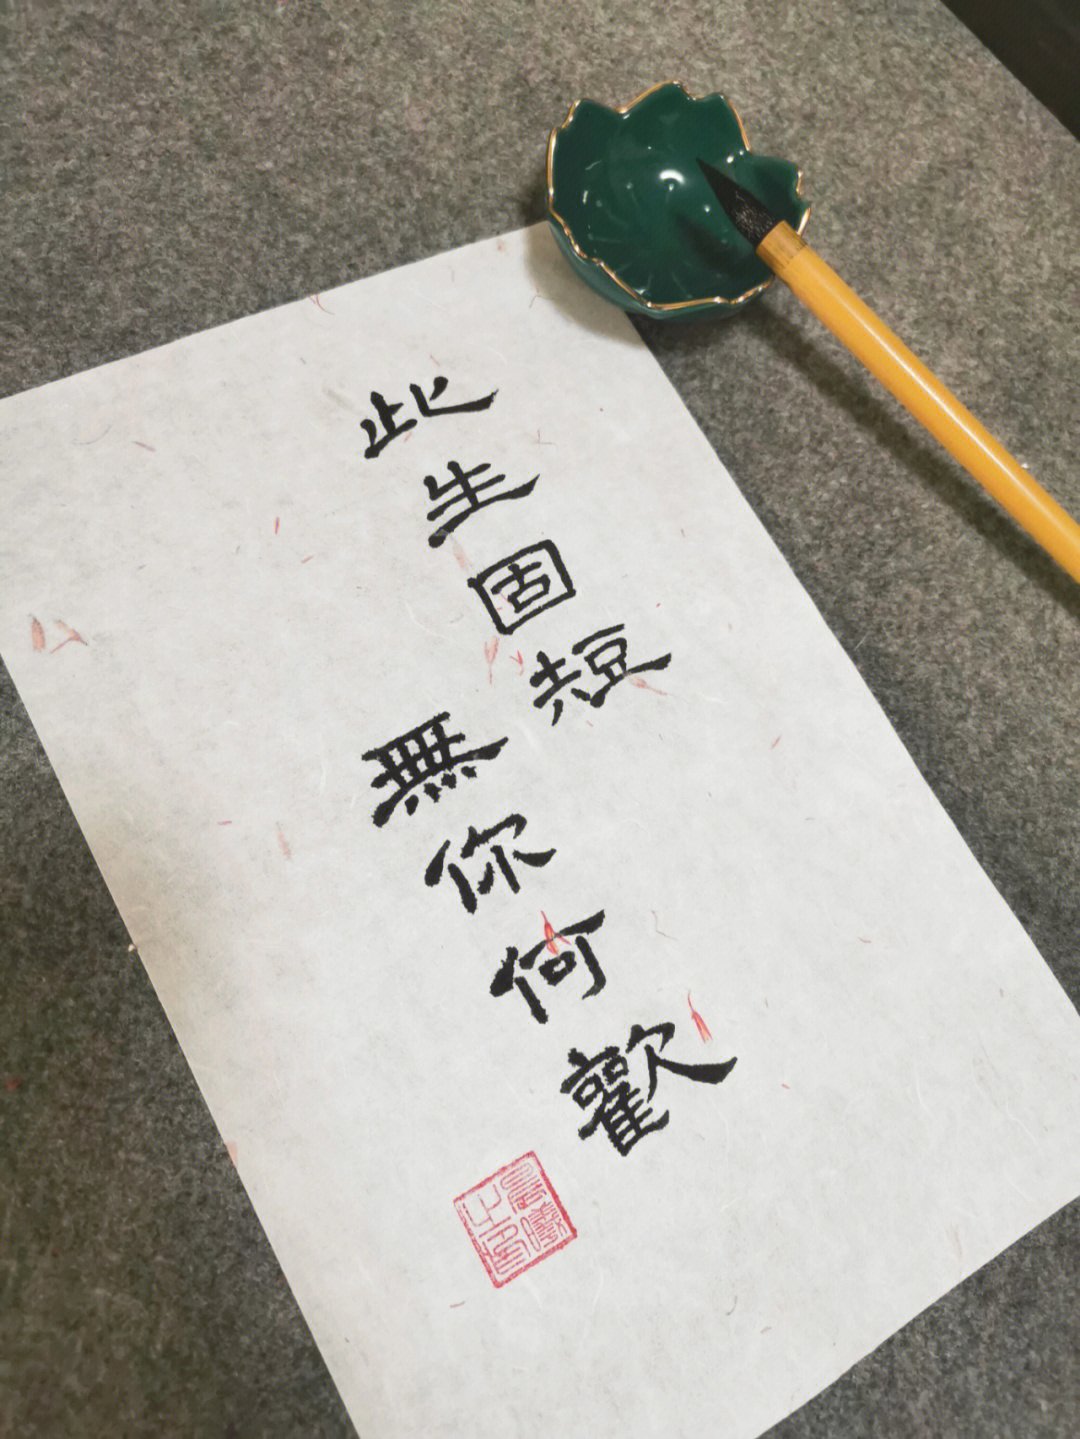 此生固短
無你何歡